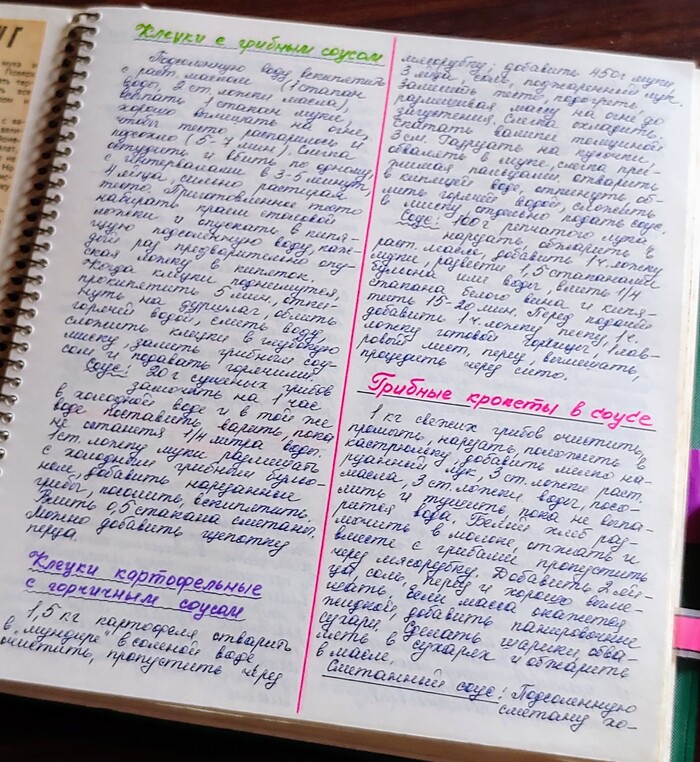 Клецки с грибным соусом
Подсоленную воду вскипятить
с раст. маслом (1 стакан
воды, 2 ст. ложки масла),
всыпать 1 стакан муки,
хорошо вымешать на огне,
чтобы тесто распарилось и
подсохло (5-7 мин). Слегка
остудить и вбить по одному,
с интервалами в 3-5 минут,
4 яйца, сильно растирая
тесто. Приготовленное тесто
набирать краем столовой
ложки и опускать в кипя-
щую подсоленную воду, каж-
дый раз предварительно опу-
ская ложку в кипяток.
Когда клецки поднимутся,
прокипятить 5 мин, отки-
нуть на дуршлаг, облить
горячей водой, слить воду,
сложить клецки в глубокую
миску, залить грибным соу-
сом и подавать горячими.
Соус: 20 г сушеных грибов
замочить на 1 час
в холодной воде и в той же
воде поставить варить, пока
не останется 1/4 литра воды.
1 ст. ложку муки размешать
с холодным грибным бульо-
ном, добавить нарезанные
грибы, посолить, вскипятить.
Влить 0,5 стакана сметаны.
Можно добавить щепотку
перца.
Клецки картофельные
с горчичным соусом
1,5 кг картофеля отварить
в "мундире" в соленой воде
очистить, пропустить через
мясорубку; добавить 450 г муки,
3 яйца, соль, поджаренный лук.
Замешать тесто, подогреть,
размешивая массу на огне до
загустения. Слегка охладить.
Скатать валики толщиной
3 см. Нарезать на кусочки,
обвалять в муке, слегка при-
жимая пальцами, отварить
в кипящей воде, откинуть, об-
лить горячей водой, сложить
в миску, отдельно подать соус.
Соус: 100 г репчатого лука
нарезать, обжарить в
раст. масле, добавить 1 ч. ложку
муки, развести 1,5 стаканами
бульона или воды, влить 1/4
стакана белого вина и кипя-
тить 15-20 мин. Перед подачей
добавить 1 ч. ложку песку, 1 ч.
ложку готовой горчицы, 1 лав-
ровый лист, перец, вымешать,
процедить через сито.
Грибные крокеты в соусе
1 кг свежих грибов очистить,
промыть, нарезать, положить в
кастрюльку, добавить мелко на-
резанный лук, 3 ст. ложки раст.
масла, 3 ст. ложки воды, посо-
лить и тушить, пока не выпа-
рится вода. Белый хлеб раз-
мочить в молоке, отжать и
вместе с грибами пропустить
через мясорубку. Добавить 2 яй-
ца, соль, перец и хорошо выме-
шать, если масса окажется
жидкой, добавить панировочные
сухари. Сделать шарики, обва-
лять в сухарях и обжарить
в масле.
Сметанный соус: Подсоленную
сметану хо-